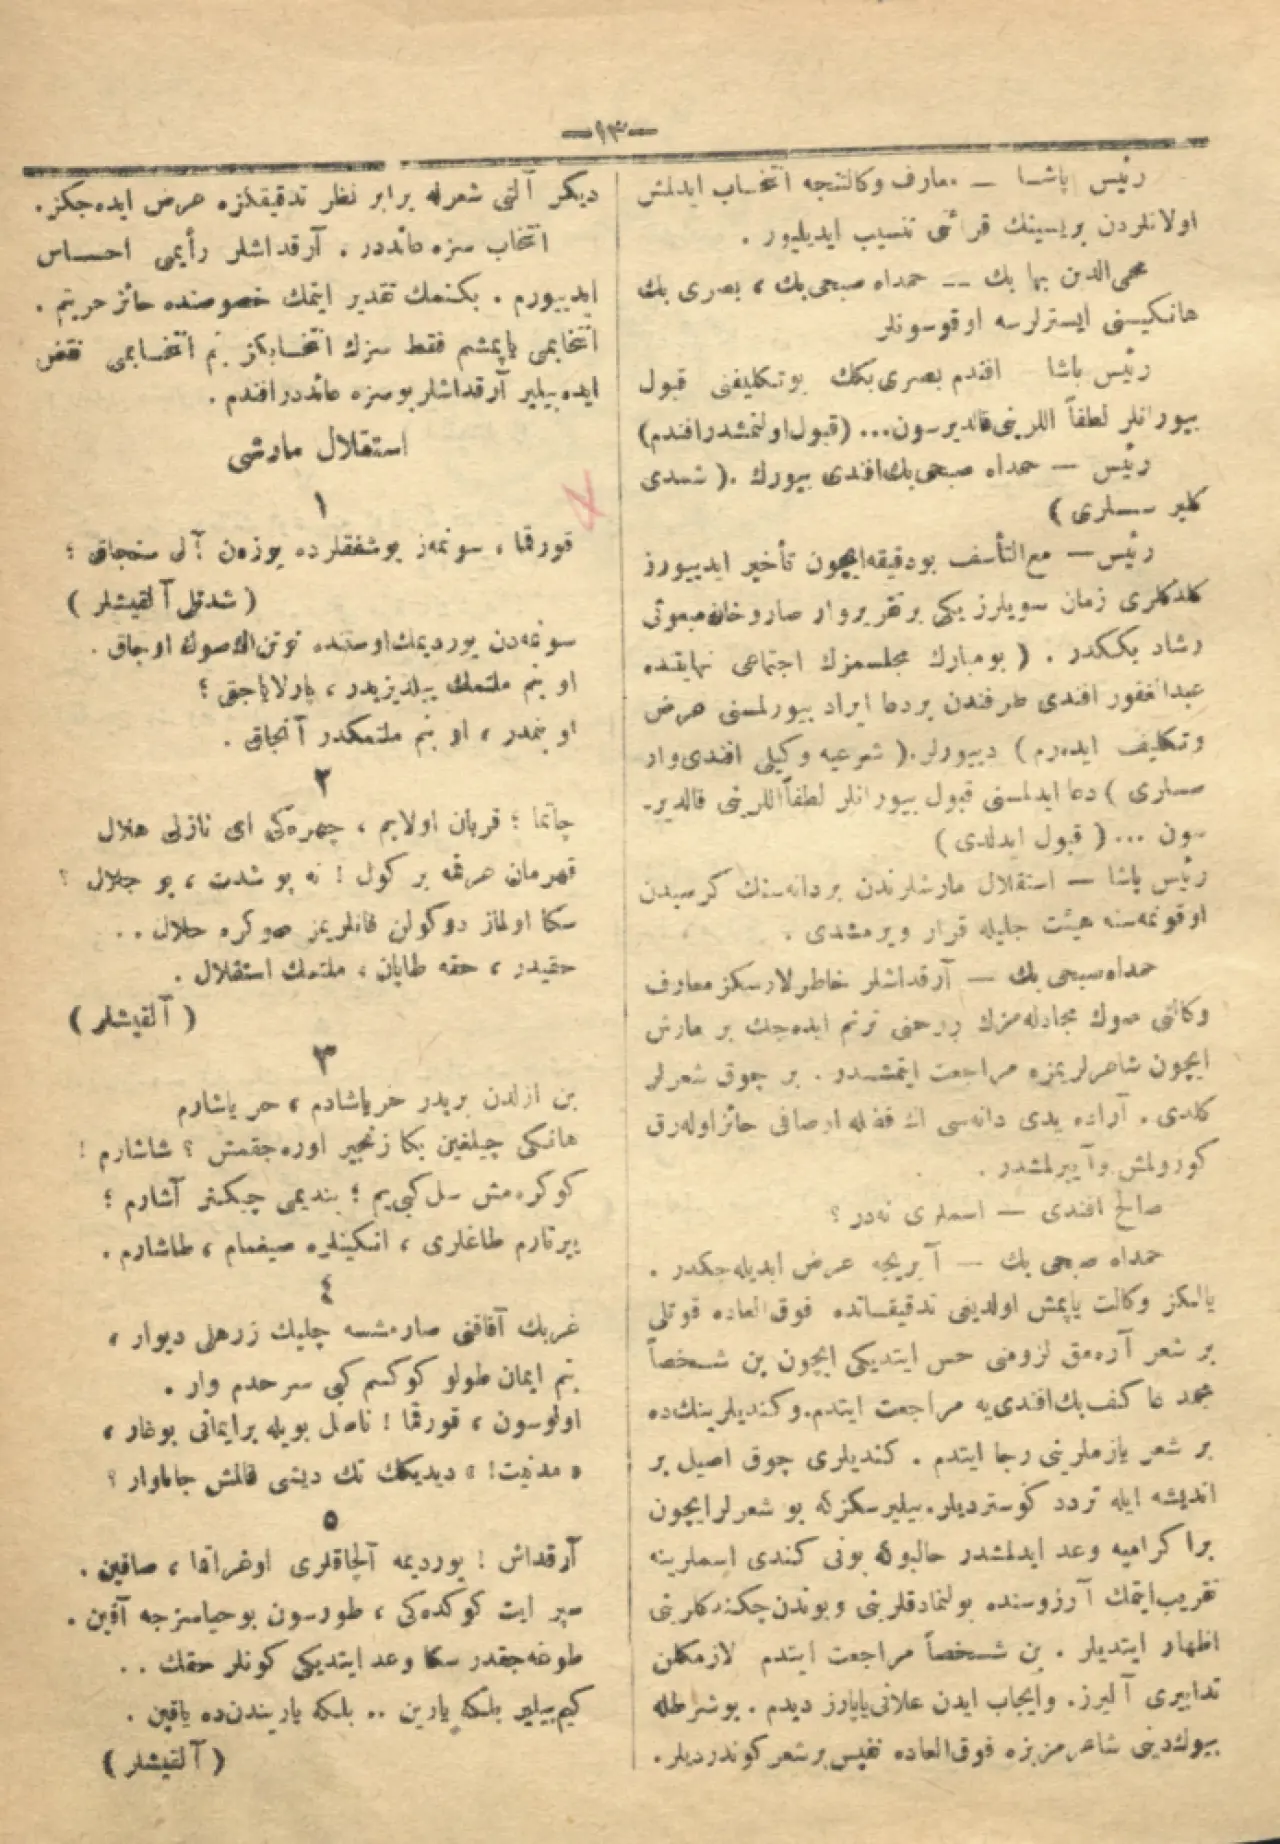 —٩٣—
رئیس پاشا — معارف وكالتنجه انتخاب ایدلمش
اولانلردن بریسینك قرائتی تنسیب ایدیلیور .
محی‌الدین بها بك — حمداه صبحی بك ، بصری بك
هانكیسنی ایسترلرسه اوقوسونلر
رئیس پاشا — افندم بصری بكك بوتكلیفنی قبول
بیورانلر لطفاً اللرینی قالدیرسون... (قبول اولنمشدر افندم)
رئیس — حمداه صبحی بك افندی بیورك .( شمدی
كلیر سسلری )
رئیس — مع‌التأسف بودقیقه ایچون تأخیر ایدییورز
كلدكلری زمان سویلرز یكی برتقریر وار صاروخان مبعوثی
رشاد بككدر . ( بومبارك مجلسمزك اجتماعی نهایتنده
عبدالغفور افندی طرفندن بردعا ایراد بیورلمسنی عرض
وتكلیف ایده‌رم ) دییورلر.( شرعیه وكیلی افندی وار
سسلری ) دعا ایدلمسنی قبول بیورانلر لطفاً اللرینی قالدیر-
سون ... ( قبول ایدلدی )
رئیس پاشا — استقلال مارشلرندن بردانه‌سنك كرسیدن
اوقونمه‌سنه هیئت جلیله قرار ویرمشدی .
حمداه صبحی بك — آرقداشلر خاطرلارسكز معارف
وكالتی صوك مجادله‌مزك روحنی ترنم ایده‌جك بر مارش
ایچون شاعرلریمزه مراجعت ایتمشدر . بر چوق شعرلر
كلدی . آراده یدی دانه‌سی اك فضله اوصافی حائز اوله‌رق
كورولمش وآیریلمشدر .
صالح افندی — اسملری نه‌در ؟
حمداه صبحی بك — آیریجه عرض ایدیله‌جكدر .
یالكز وكالت یاپمش اولدیغی تدقیقاتده فوق‌العاده قوتلی
بر شعر آره‌مق لزومنی حس ایتدیكی ایچون بن شخصاً
محمد عا كف بك افندی‌یه مراجعت ایتدم.وكندیلرینك‌ده
بر شعر یازملرینی رجا ایتدم . كندیلری چوق اصیل بر
اندیشه ایله تردد كوستردیلر. بیلیرسكز كه بو شعرلر ایچون
برا كرامیه وعد ایدلمشدر حالبوكه بونی كندی اسملرینه
تقریب ایتمك آرزوسنده بولنمادقلرینی وبوندن چكندكلرینی
اظهار ایتدیلر . بن شخصاً مراجعت ایتدم لازمكلن
تدابیری آلیرز. وایجاب ایدن علانی یاپارز دیدم . بوشرطله
بیوك دینی شاعرمز بزه فوق‌العاده نفیس بر شعر كوندردیلر.
دیكر آلتی شعرله برابر نظر تدقیقكزه عرض ایده‌جكز.
انتخاب سزه عائددر . آرقداشلر رأیمی احساس
ایدییورم . بكنمك تقدیر ایتمك خصوصنده حائز حریتم .
انتخابمی یاپمشم فقط سزك انتخابكز بنم انتخابمی نقض
ایده‌بیلیر آرقداشلر بوسزه عائددر افندم .
استقلال مارشی
١
قورقما ، سونمه‌ز بوشفقلرده یوزه‌ن آلی سنجاق ؛
( شدتلی آلقیشلر )
سونمه‌دن یوردیمك اوستنده توتن اك صوك اوجاق .
او بنم ملتمك ییلدیزیدر ، پارلایاجق ؛
او بنمدر ، او بنم ملتمكدر آنجاق .
٢
چاتما ؛ قربان اولایم ، چهره‌كی ای نازلی هلال
قهرمان عرقمه بر كول ! نه بو شدت ، بو جلال ؟
سكا اولماز دوكولن قانلریمز صوكره حلال . .
حقیدر ، حقه طاپان ، ملتمك استقلال .
( آلقیشلر )
٣
بن ازلدن بریدر حر یاشادم ، حر یاشارم
هانكی چیلغین بكا زنجیر اوره‌جقمش ؟ شاشارم !
كوكره‌مش سل كبی‌یم ؛ بندیمی چیكنر آشارم ؛
ییرتارم طاغلری ، انكینلره صیغمام ، طاشارم .
٤
غربك آفاقنی صارمشسه چلیك زرهلی دیوار ،
بنم ایمان طولو كوكسم كبی سرحدم وار .
اولوسون ، قورقما ! ناصل بویله برایمانی بوغار ،
« مدنیت! » دیدیكك تك دیشی قالمش جاناوار ؟
٥
آرقداش ! یوردیمه آلچاقلری اوغراتما ، صاقین .
سپر ایت كوكده‌كی ، طورسون بوحیاسزجه آقین .
طوغه‌جقدر سكا وعد ایتدیكی كونلر حقك . .
كیم بیلیر بلكه یارین .. بلكه یاریندن‌ده یاقین .
( آلقیشلر )